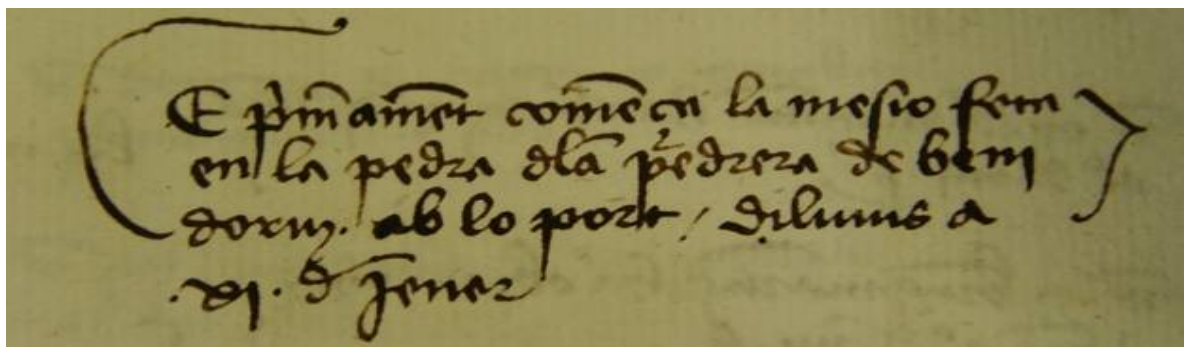 E p̃rm̃amẽt comẽça la mesio feta
en la pedra dlã pedrera de beni
dorm. ab lo port / diluns a
.xi. d Jener